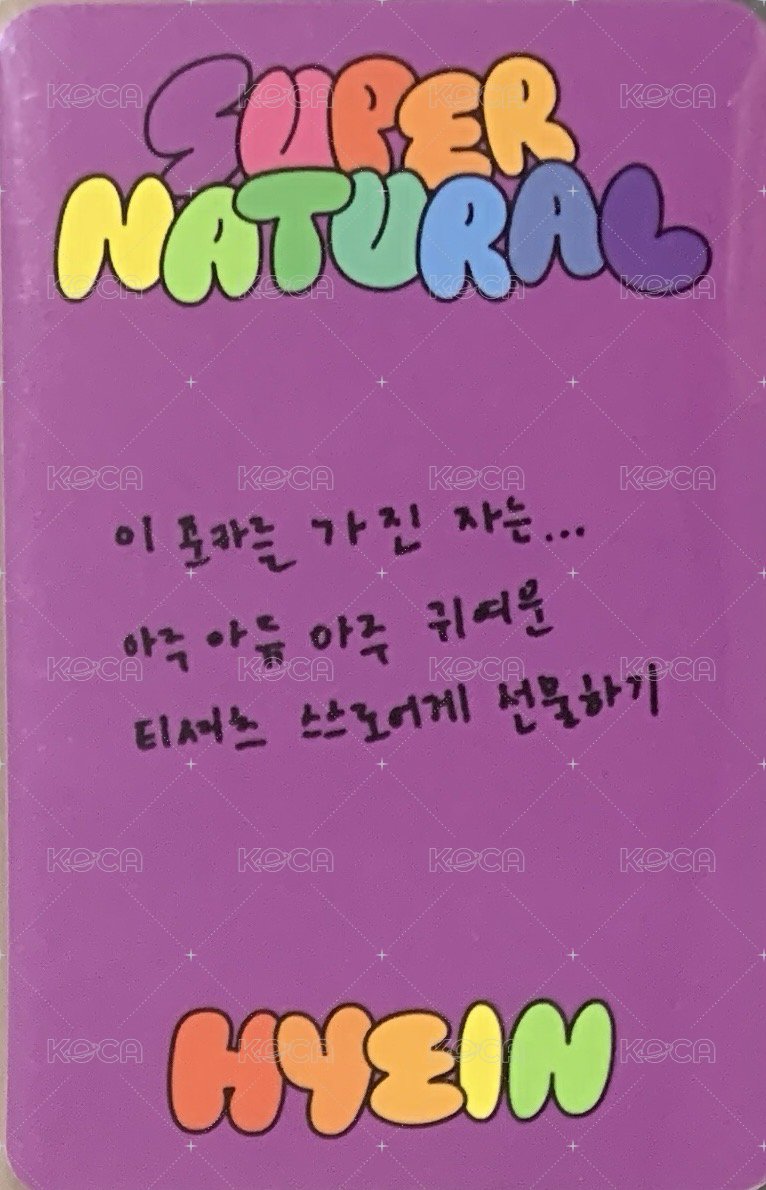 SUPER
NATURAL
이 포카를 가진 자는...
아주 아듀 아주 귀여운
티셔츠 스스로에게 선물하기
HYEIN
KOCA